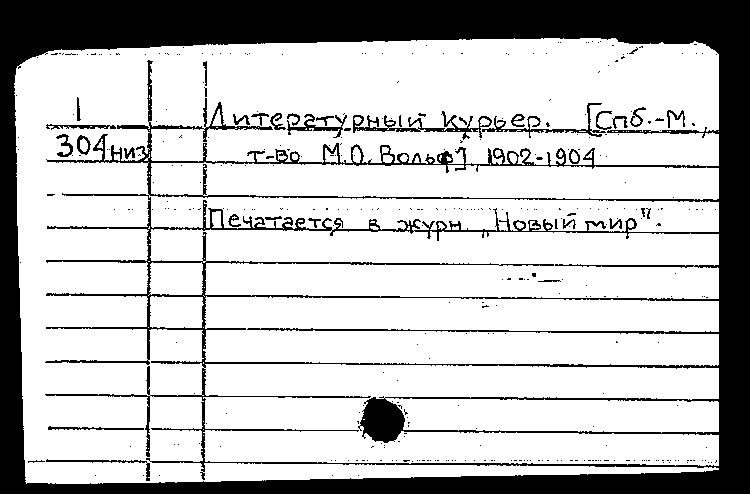 1
304низ
Литературный курьер. [Спб.-М.,
т-во М.О. Вольф], 1902-1904
Печатается в журн. „Новый мир".